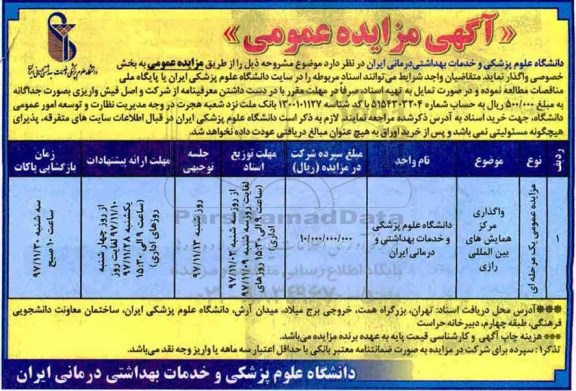 «آگهی مزایده عمومی»
دانشگاه علوم پزشکی و خدمات بهداشتی درمانی ایران
دانشگاه علوم پزشکی و خدمات بهداشتی،درمانی ایران در نظر دارد موضوع مشروحه ذیل را از طریق مزایده عمومی به بخش
خصوصی واگذار نماید. متقاضیان واجد شرایط می‌توانند اسناد مربوطه را در سایت دانشگاه علوم پزشکی ایران یا پایگاه ملی
مناقصات مطالعه نموده و در صورت تمایل به تهیه اسناد، صرفاً در مهلت مقرر با در دست داشتن معرفینامه از شرکت و اصل فیش واریزی بصورت جداگانه
به مبلغ ۵۰۰/۰۰۰ ریال به حساب شماره ۵۱۵۴۳۰۲۲۰۴ با کد شناسه ۱۳۰۰۱۰۱۱۲۷ بانک ملت نزد شعبه هجرت در وجه مدیریت نظارت و توسعه امور عمومی
دانشگاه، جهت خرید اسناد به آدرس ذکرشده مراجعه نمایند. لازم به ذکر است دانشگاه علوم پزشکی ایران در قبال اطلاعات سایت های متفرقه، پذیرای
هیچگونه مسئولیتی نمی باشد و پس از خرید اوراق به هیچ عنوان مبالغ دریافتی عودت داده نخواهد شد.
ردیف
نوع
موضوع
نام واحد
مبلغ سپرده شرکت در مزایده (ریال)
مهلت توزیع اسناد
جلسه توجیهی
مهلت ارائه پیشنهادات
زمان بازگشایی پاکات
۱
مزایده عمومی یک مرحله ای
واگذاری
مرکز
همایش های
بین المللی
رازی
دانشگاه علوم پزشکی
و خدمات بهداشتی و
درمانی ایران
۱۰/۰۰۰/۰۰۰/۰۰۰
از روز سه شنبه ۹۷/۱۱/۰۲
لغایت روز سه شنبه ۹۷/۱۱/۰۹
(ساعت ۹ الی ۱۵:۳۰ روزهای
اداری)
روز شنبه ۹۷/۱۱/۱۳
از روز چهار شنبه
۹۷/۱۱/۱۰ لغایت روز
یکشنبه ۹۷/۱۱/۲۸
(ساعت ۹ الی ۱۵:۳۰
روزهای اداری)
سه شنبه ۹۷/۱۱/۳۰
ساعت ۱۰ صبح
ParsNamadData
پایگاه اطلاع رسانی
***آدرس محل دریافت اسناد: تهران، بزرگراه همت، خروجی برج میلاد، میدان آرش، دانشگاه علوم پزشکی ایران، ساختمان معاونت دانشجویی
فرهنگی، طبقه چهارم، دبیرخانه حراست
*** هزینه چاپ آگهی و کارشناسی قیمت پایه به عهده برنده مزایده می‌باشد.
تذکر۱: سپرده برای شرکت در مزایده به صورت ضمانتنامه معتبر بانکی با حداقل اعتبار سه ماهه یا واریز وجه نقد می‌باشد.
دانشگاه علوم پزشکی و خدمات بهداشتی درمانی ایران